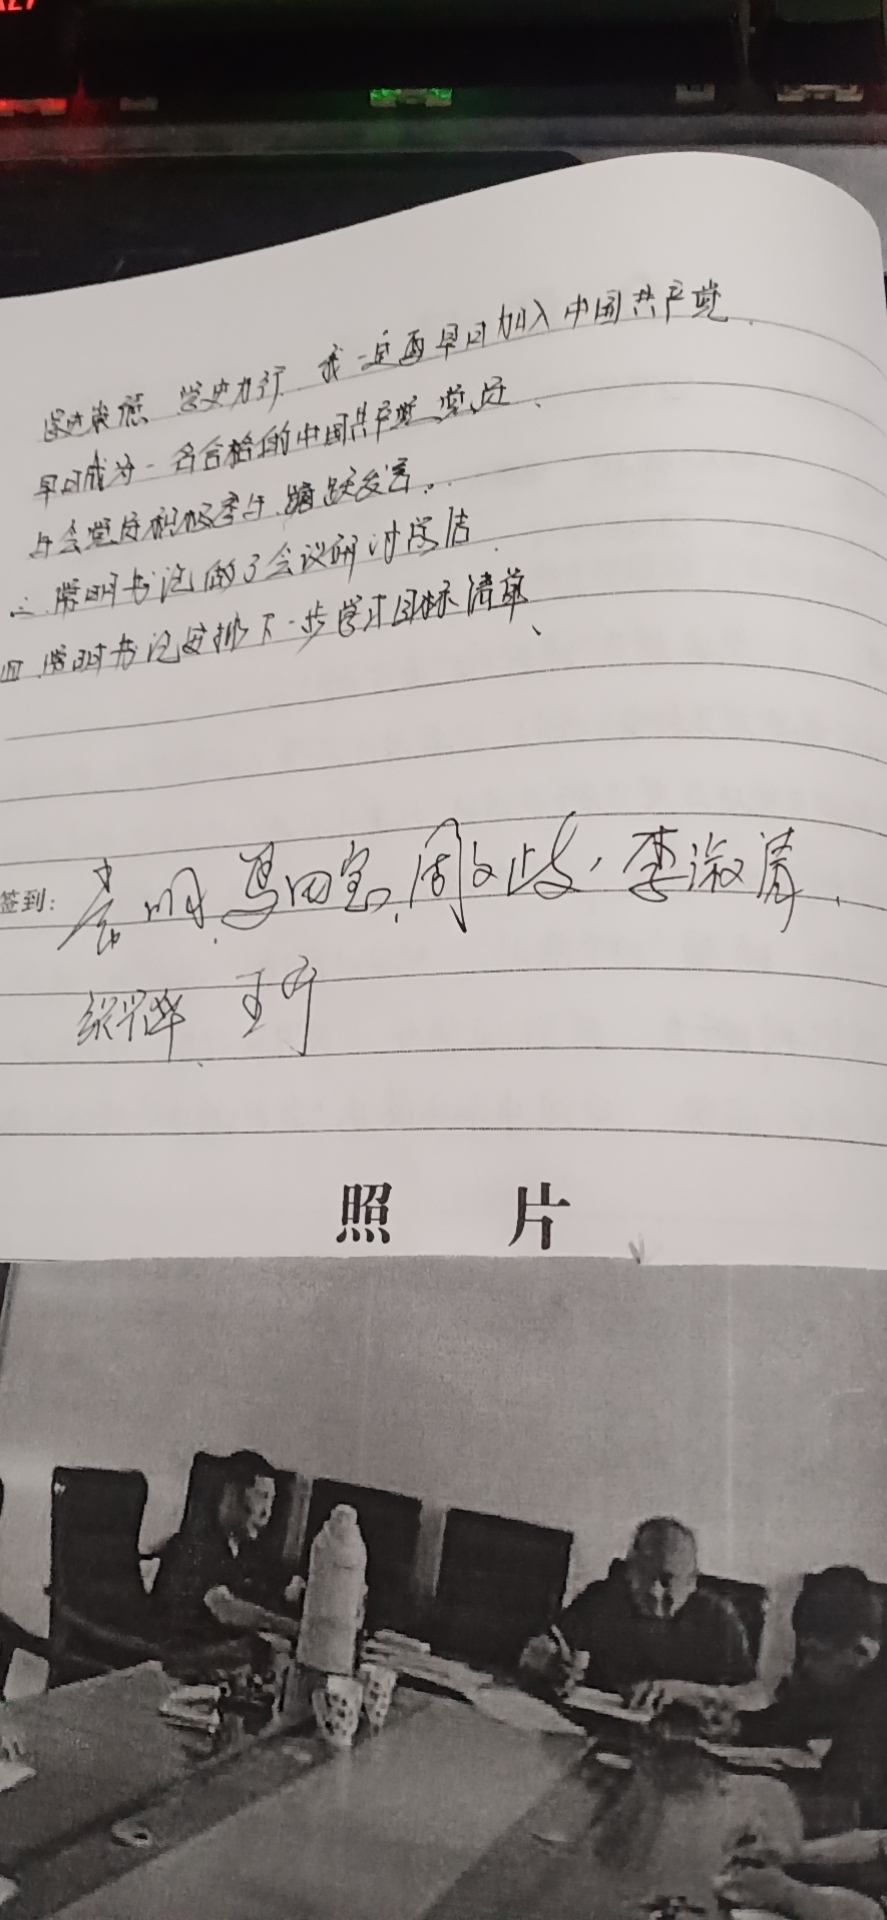 学史崇德 学史力行 我一定要早日加入中国共产党
早日成为一名合格的中国共产党党员、
与会党员积极参与、踊跃发言。
三、常明书记做了会议研讨总结
四、常明书记安排下一步学习目标清单、
签到: 常明、马四宝、周文歧、李淑清、
王宁
照 片